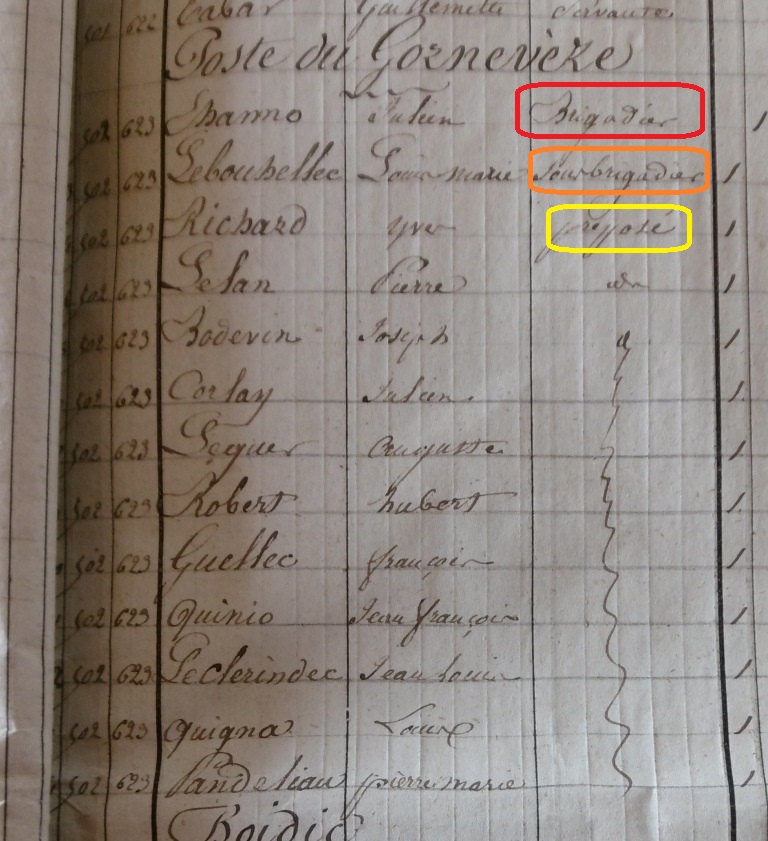 501 622 Cabar Guillemette Servante
Poste du Gornevèze
502 623 Thanno Julien Brigadier 1
502 623 Lebouhellec Louis marie sousbrigadier 1
502 623 Richard yves préposé 1
502 623 Lelan Pierre do 1
502 623 Bodevin Joseph 1
502 623 Corlay Julien 1
502 623 Leguer auguste 1
502 623 Robert hubert 1
502 623 Guellec françois 1
502 623 Quinio Jean françois 1
502 623 Leclerindec Jean louis 1
502 623 quigna Louis 1
502 623 Pandeliau pierre marie 1
Boidic